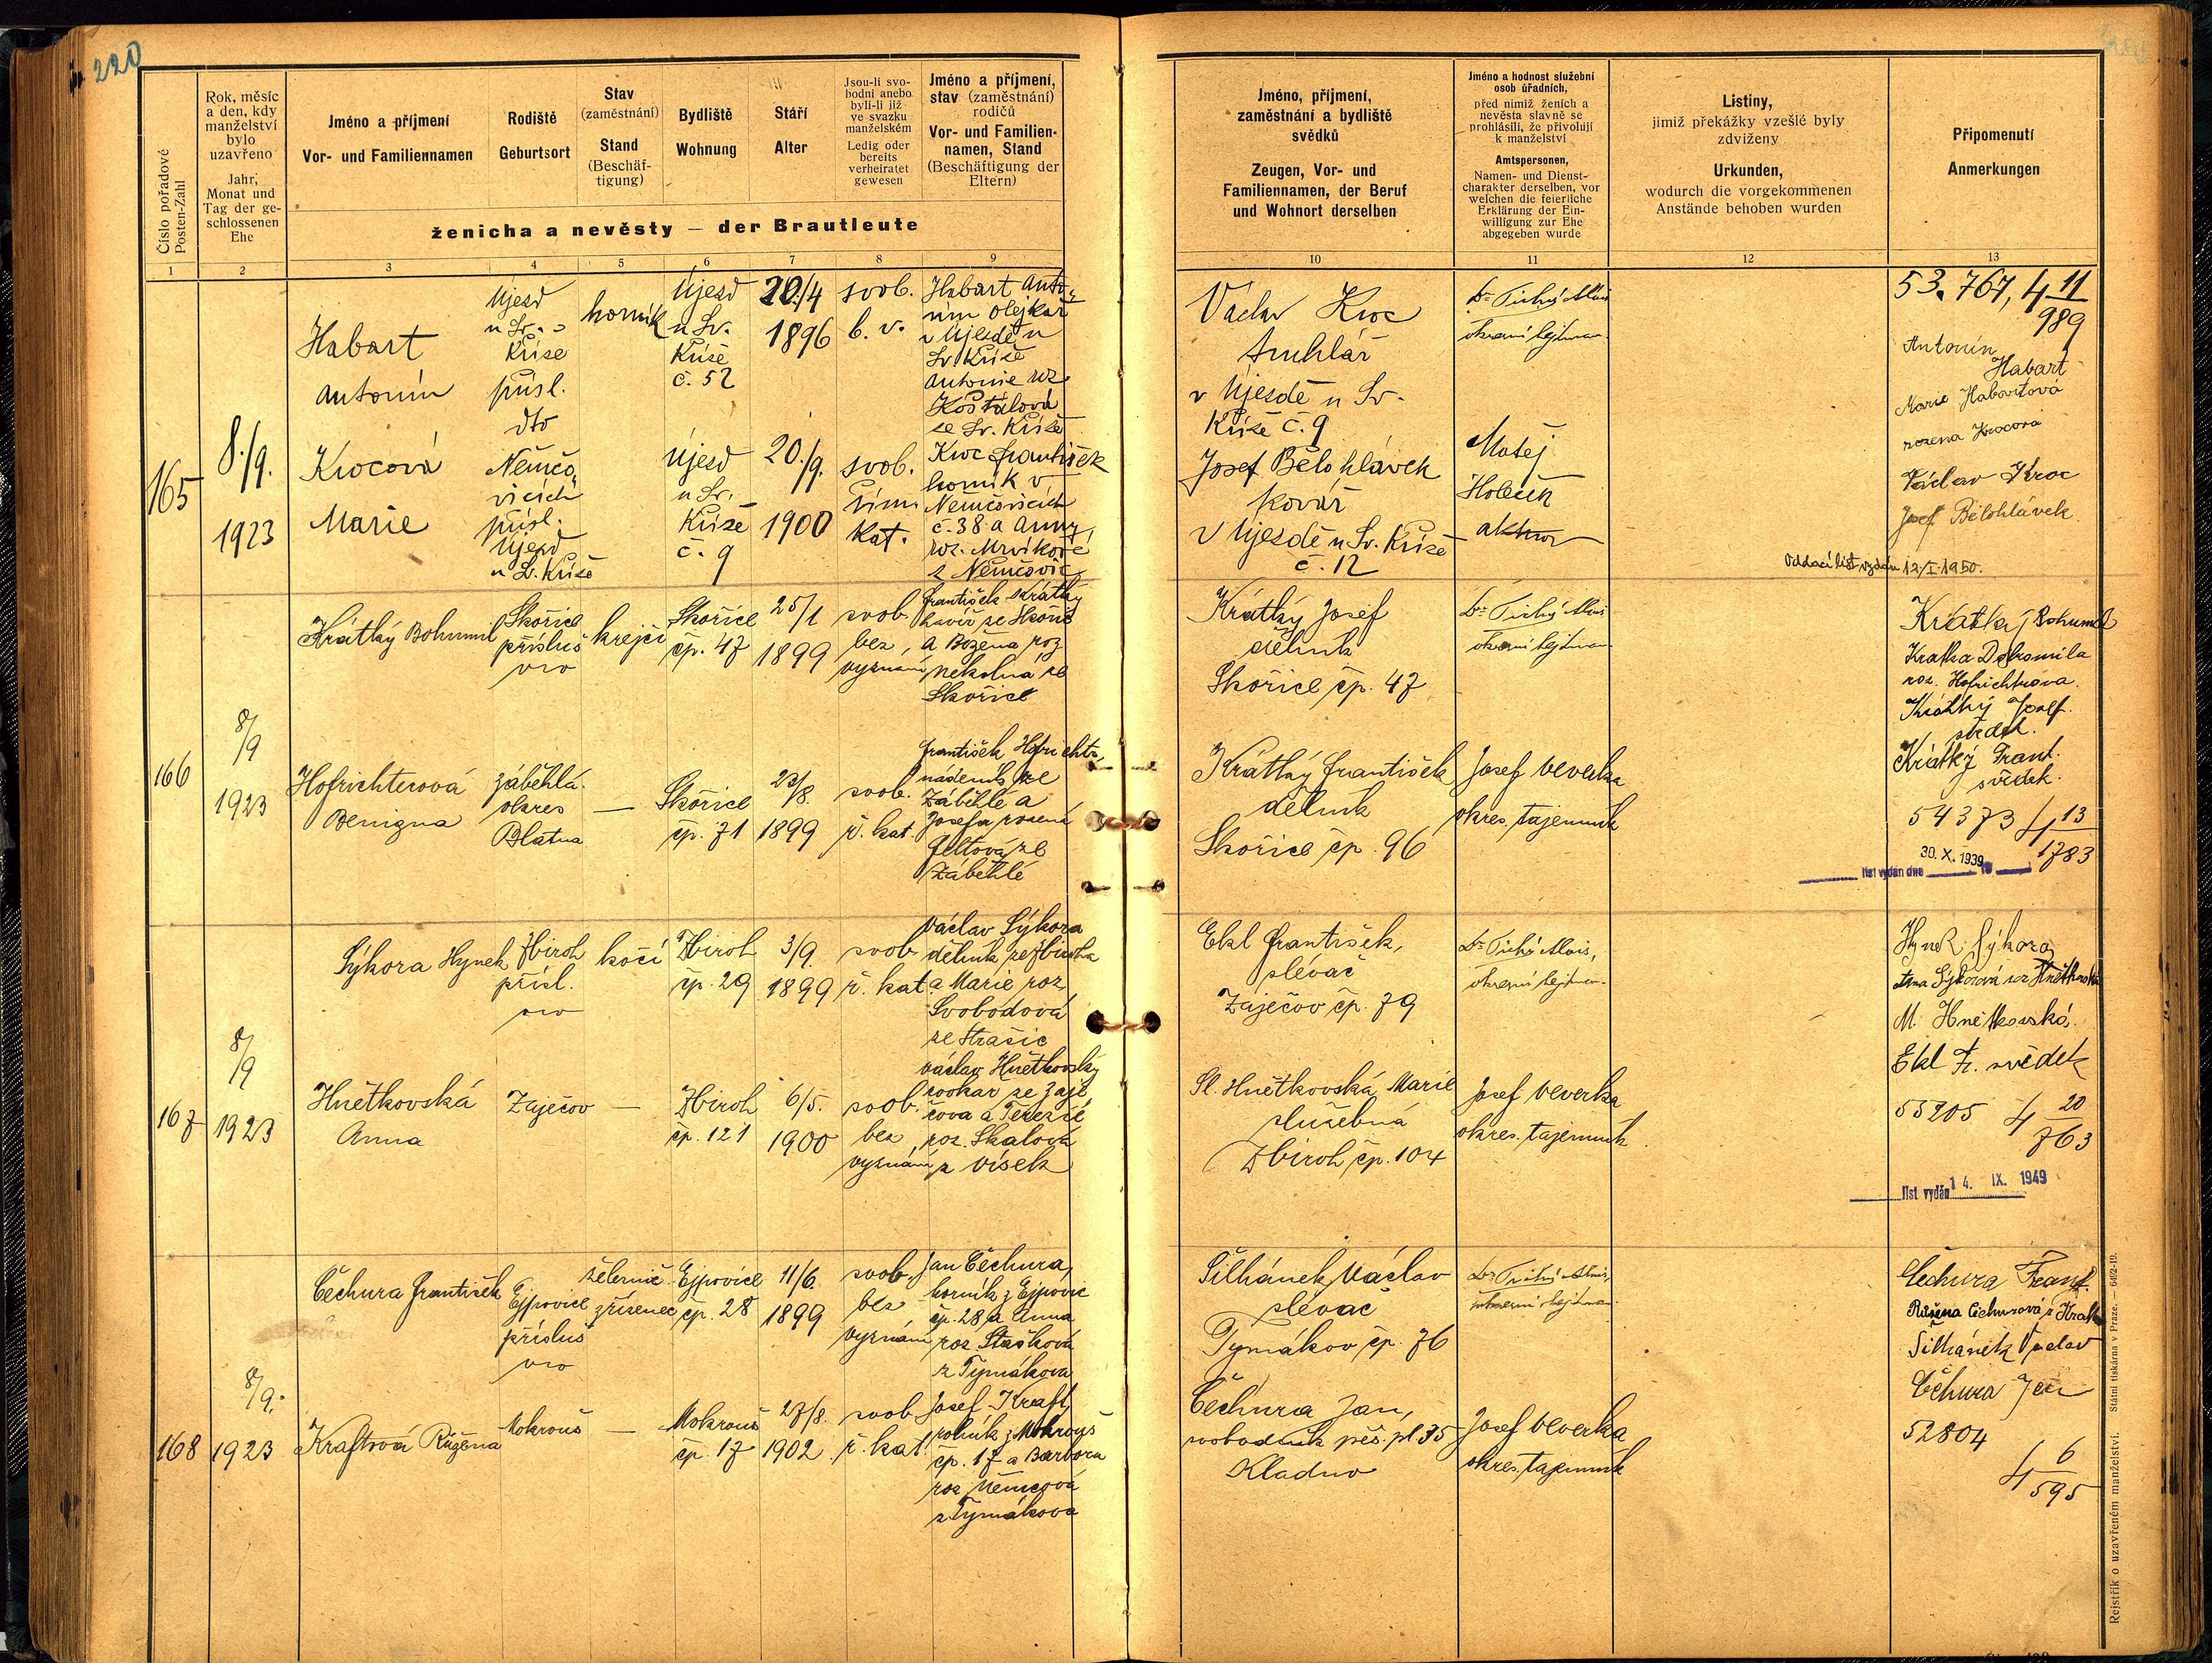 220
Číslo pořadové
Posten-Zahl
Rok, měsíc
a den, kdy
manželství
bylo
uzavřeno
Jahr,
Monat und
Tag der ge-
schlossenen
Ehe
Jméno a příjmení
Vor- und Familiennamen
Rodiště
Geburtsort
Stav
(zaměstnání)
Stand
(Beschäf-
tigung)
Bydliště
Wohnung
Stáří
Alter
Jsou-li svo-
bodni anebo
byli-li již
ve svazku
manželském
Ledig oder
bereits
verheiratet
gewesen
Jméno a příjmení,
stav (zaměstnání)
rodičů
Vor- und Familien-
namen, Stand
(Beschäftigung der
Eltern)
ženicha a nevěsty — der Brautleute
1 2 3 4 5 6 7 8 9
165
8./9.
1923
Habart
Antonín
Újezd
u Sv.
Kříže
přísl.
dto
horník
Újezd
u Sv.
Kříže
č. 52
20./4
1896
svob.
b. v.
Habart Anto-
nín olejkář
v Újezdě u
Sv. Kříže
Antonie roz.
Košťálová
ze Sv. Kříže
Krocová
Marie
Němčo
vicích
přísl.
Újezd
u Sv. Kříže
Újezd
u Sv.
Kříže
č. 9
20./9.
1900
svob.
říms
kat.
Kroc František
horník v
Němčovicích
č. 38 a Anny
roz. Mrvíkové
z Němčovic
166
8/9
1923
Krátký Bohumil
Skořice
přísluš
krejčí
Skořice
čp. 47
25/1
1899
svob.
bez
vyznání
František Krátký
havíř ze Skořic
a Božena roz
ze
Skořice
Hofrichterová
Benigna
Záběhlá
okres
Blatna
—
Skořice
čp. 71
23/8.
1899
svob.
ř. kat.
František Hofrichter,
nádeník ze
Záběhlé a
Josefa rozená
ze
Záběhlé
167
8/9
1923
Sýkora Hynek
Zbiroh
přísl.
kočí
Zbiroh
čp. 29
3/9.
1899
svob
ř. kat.
Václav Sýkora
dělník ze Zbiroha
a Marie roz
Svobodová
ze Strašic
Hnětkovská
Anna
Zaječov
—
Zbiroh
čp. 121
6/5.
1900
svob.
bez
vyznání
Václav Hnětkovský
cvokař ze Zaje
čova a Terezie
roz. Skalová
z Vísek
168
8/9.
1923
Čechura František
Ejpovice
přísluš
železnič
zřízenec
Ejpovice
čp. 28
11/6.
1899
svob
bez
vyznání
Jan Čechura,
horník z Ejpovic
čp. 28 a Anna
roz Stašková
z Tymákova
Kraftová Růžena
Mokrouš
—
Mokrouš
čp. 17
27/8.
1902
svob
ř. kat.
Josef Kraft,
rolník z Mokrouš
čp. 17 a Barbora
roz Němcová
z Tymákova
Jméno, příjmení,
zaměstnání a bydliště
svědků
Zeugen, Vor- und
Familiennamen, der Beruf
und Wohnort derselben
Jméno a hodnost služební
osob úřadních,
před nimiž ženich a
nevěsta slavně se
prohlásili, že přivolují
k manželství
Amtspersonen,
Namen- und Dienst-
charakter derselben, vor
welchen die feierliche
Erklärung der Ein-
willigung zur Ehe
abgegeben wurde
Listiny,
jimiž překážky vzešlé byly
zdviženy
Urkunden,
wodurch die vorgekommenen
Anstände behoben wurden
Připomenutí
Anmerkungen
10 11 12 13
Václav Kroc
truhlář
v Újezdě u Sv.
Kříže č. 9
Josef Bělohlávek
kovář
v Újezdě u Sv. Kříže
č. 12
Dr Tichý Alois
okresní hejtman
Matěj
Holeček
aktuar
53.767, 4 11/989
Antonín
Habart
Marie Habartová
rozena Krocová
Václav Kroc
Josef Bělohlávek
Oddací list vydán 12/I. 1950.
Krátký Josef
dělník
Skořice čp. 47
Krátký František
dělník
Skořice čp. 96
Dr Tichý Alois
okresní hejtman
Josef Veverka
okres. tajemník
Krátký Bohumil
roz. Hofrichtrova.
Krátký Josef.
svědek.
Krátký Frant.
svědek.
54373 4 13/1783
30. X. 1939
list vydán dne 19
Ekl František,
slévač
Zaječov čp. 79
Sl. Hnětkovská Marie
služebná
Zbiroh čp. 104
Dr Tichý Alois,
okresní hejtman
Josef Veverka
okres. tajemník
Hynek Sýkora
Anna Sýkorová roz Hnětkovská
M. Hnětkovská.
Ekl Fr. svědek
55205 4 20/763
list vydán 14. IX. 1949
Šilhánek Václav
slévač
Tymákov čp. 76
Čechura Jan,
svobodník pěš. pl 35
Kladno
Dr Tichý Alois,
okresní hejtman
Josef Veverka
okres. tajemník
Čechura Frant.
Růžena Čechurová r. Kraft
Šilhánek Václav
Čechura Jan
52804
4 6/595
Rejstřík o uzavřeném manželství. Státní tiskárna v Praze. — 6492-19.